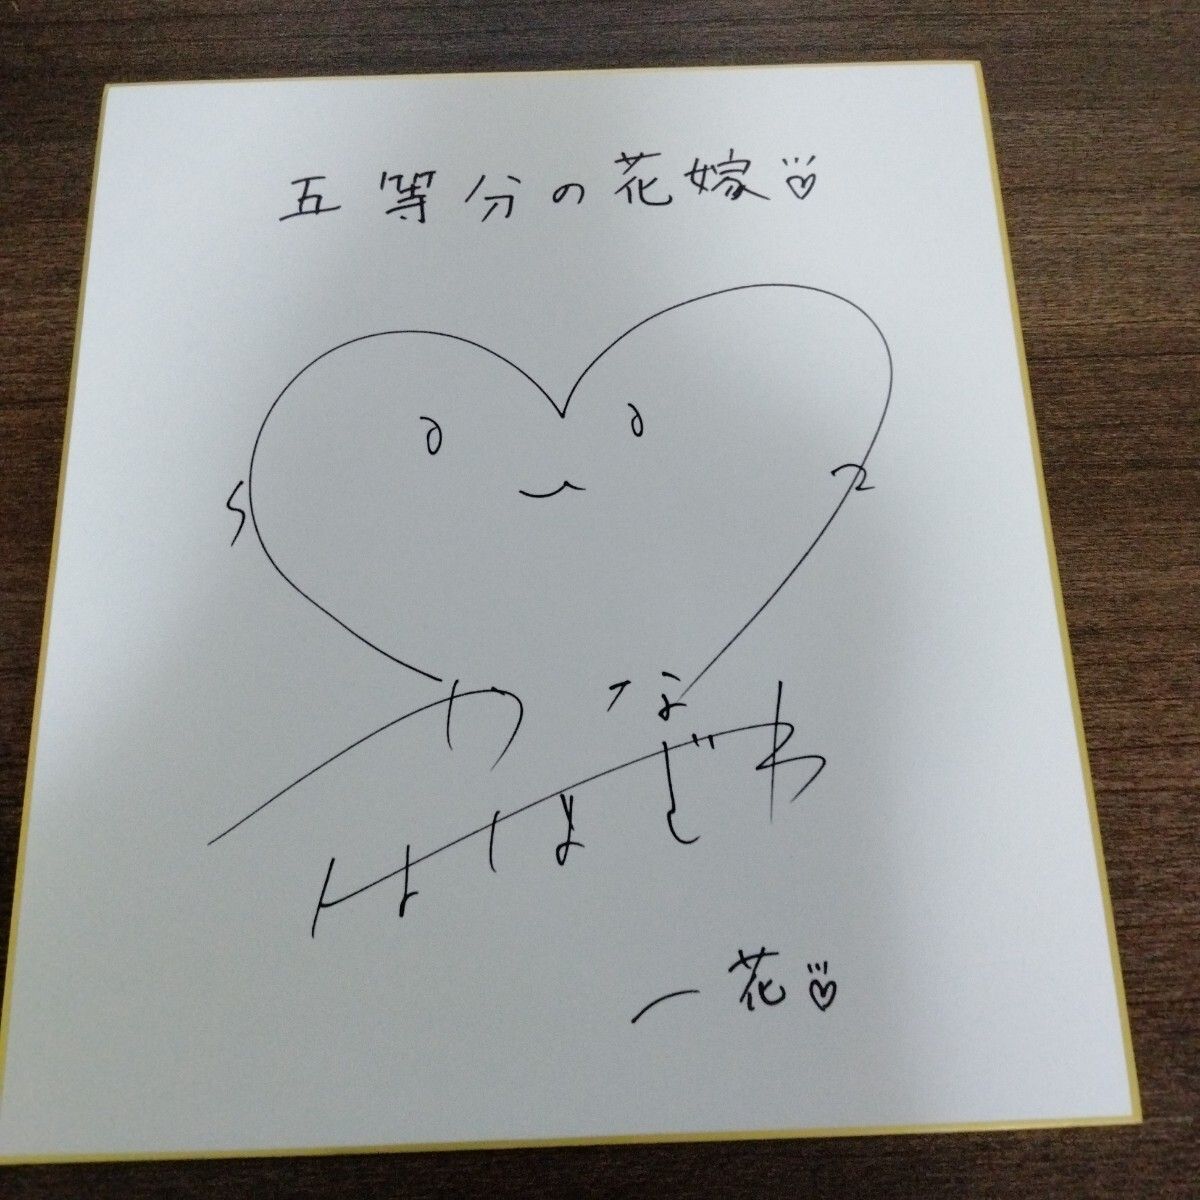 五等分の花嫁
かな
はなざわ
一花